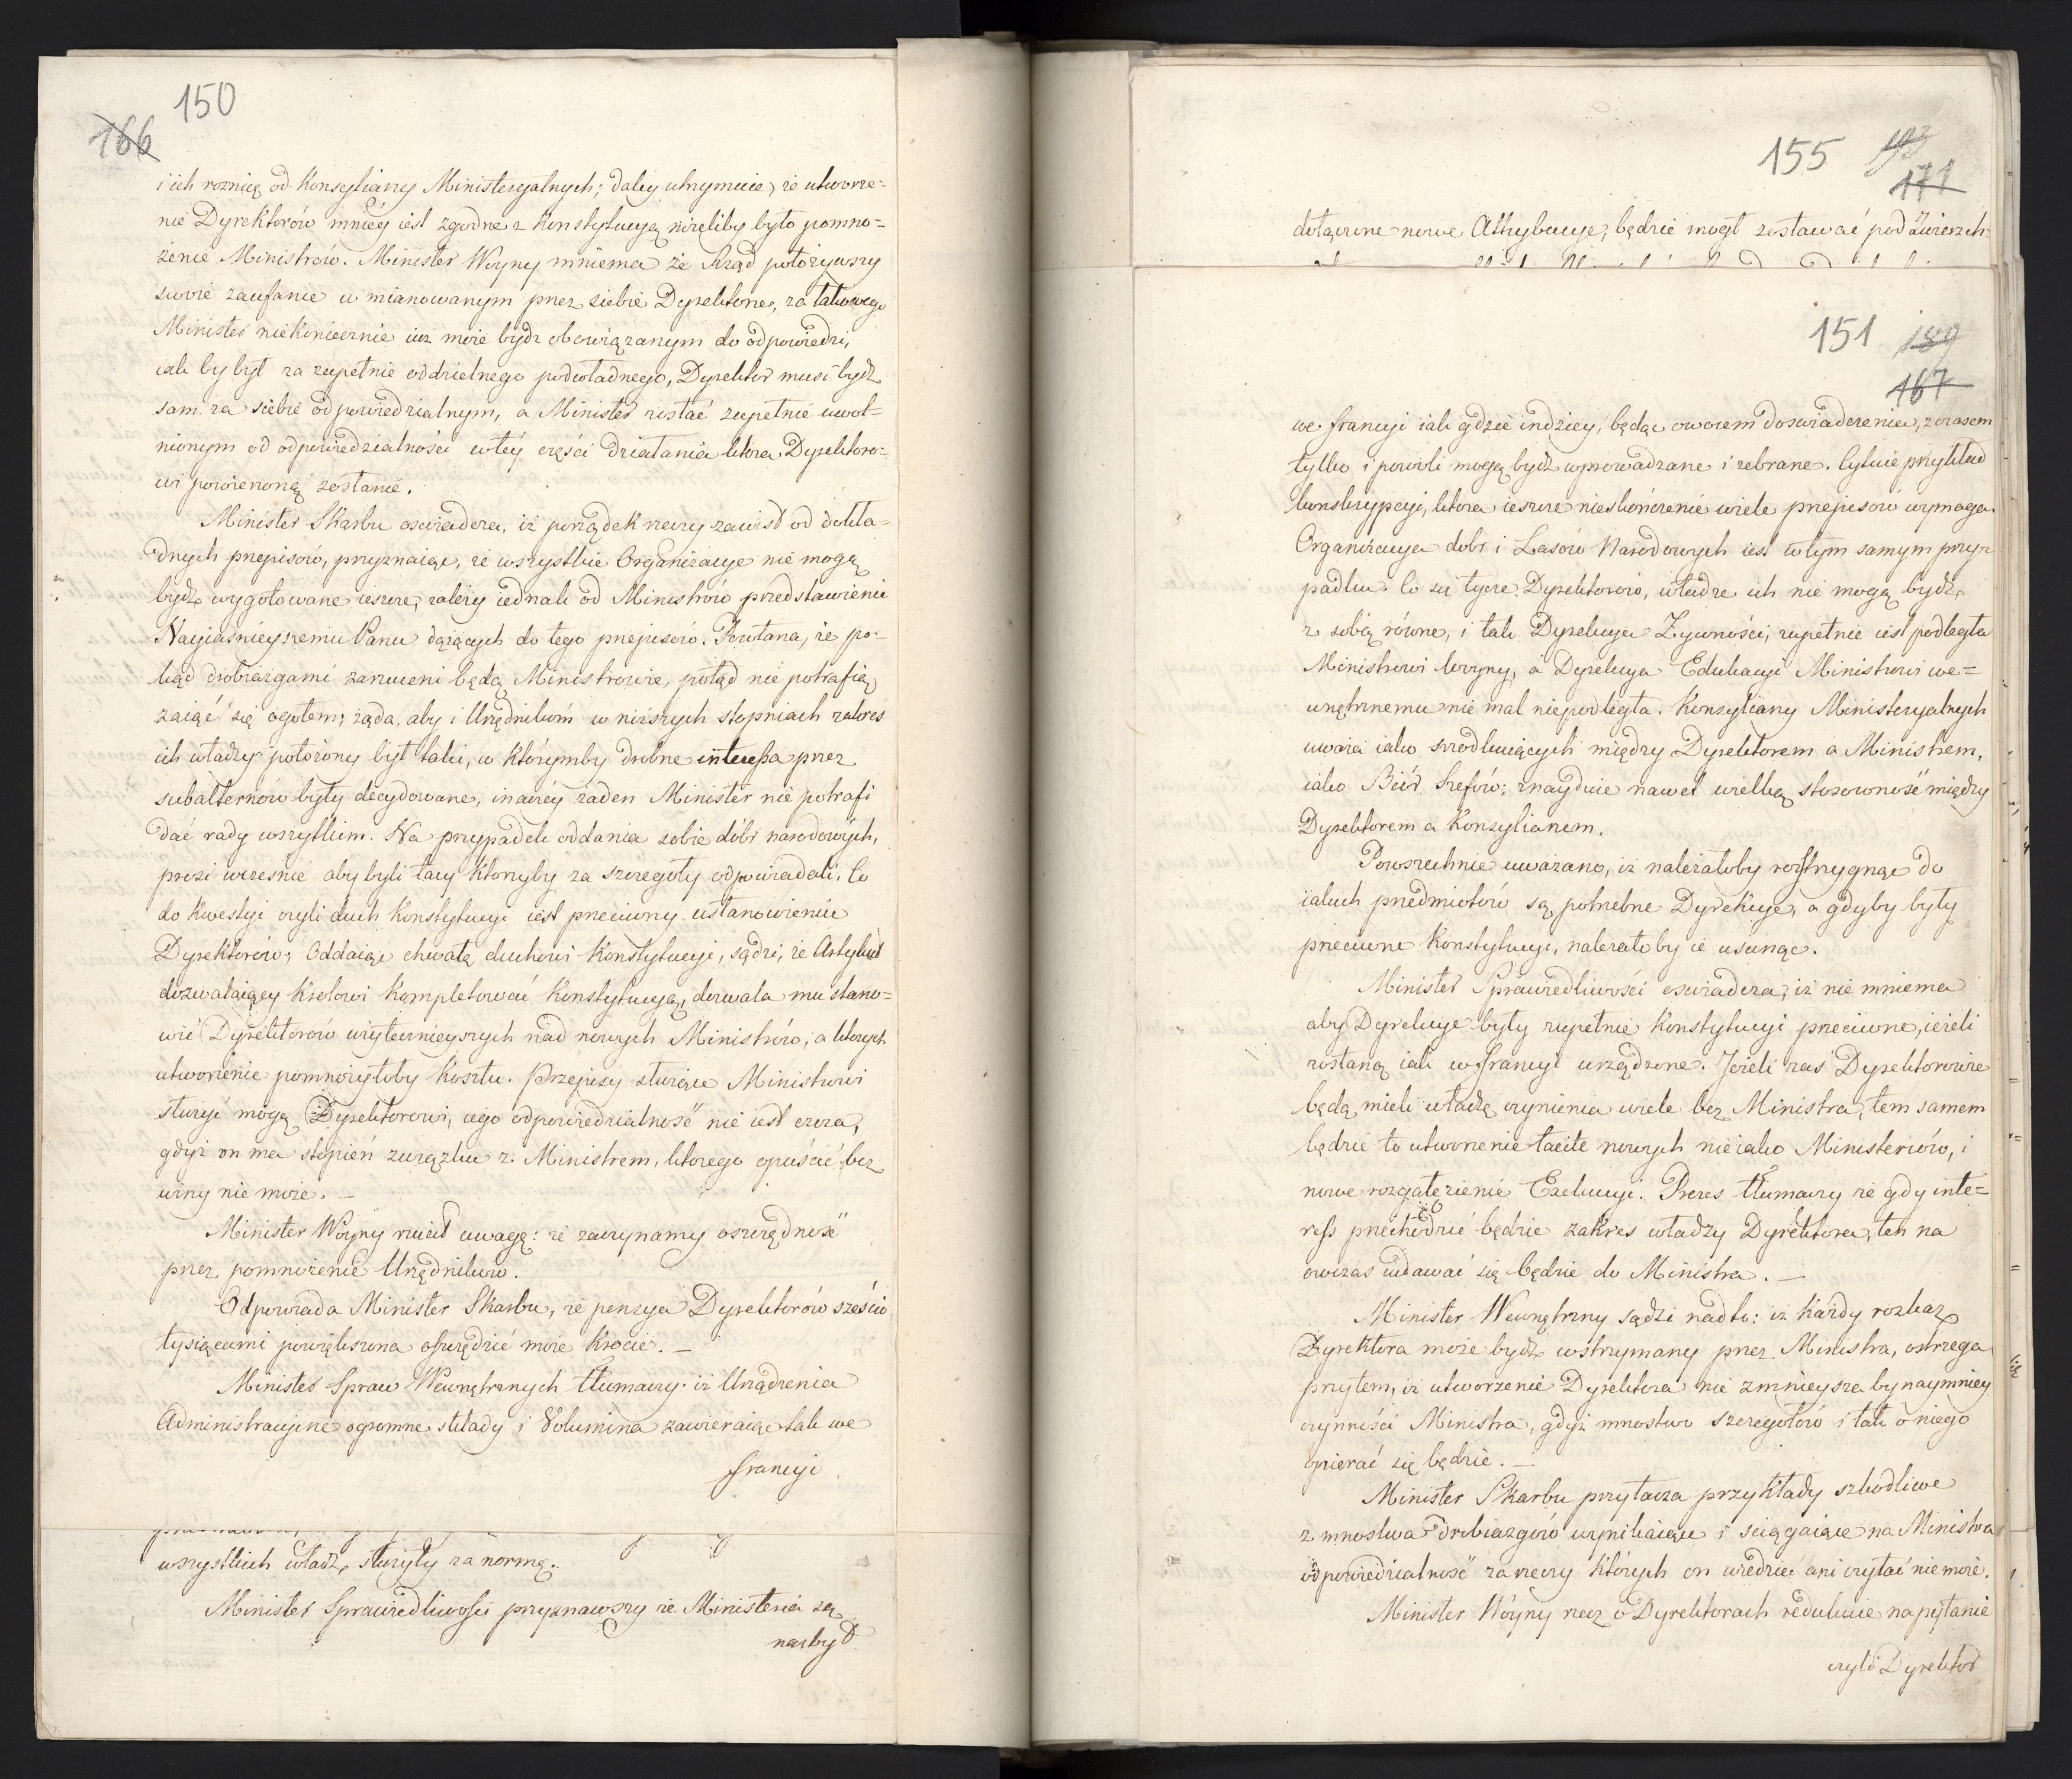 150
166
i ich roznią od Konsyliarzy Ministeryalnych; daley utrzymuie, że utworze=
nie Dyrektorów mniey iest zgodne z Konstytucyą niżeliby było pomno=
żenie Ministrów. Minister Woyny mniema że Rząd położywszy
swoie zaufanie w mianowanym przez siebie Dyrektorze, za takowego
Minister niekoniecznie iuż może bydź obowiązanym do odpowiedzi,
iak by był za zupełnie oddzielnego podwładnego, Dyrektor musi bydź
sam za siebie odpowiedzialnym, a Minister zostać zupełnie uwol=
nionym od odpowiedzialności w téy części działania która Dyrektoro=
wi powierzoną zostanie.
Minister Skarbu oswiadcza, iż porządek rzeczy zawisł od dokła=
dnych przepisów, przyznaiąc, że wszystkie Organizacye nie mogą
bydź wygotowane ieszcze, zależy iednak od Ministrów przedstawienie
Nayiaśnieyszemu Panu dążących do tego przepisów. Powtarza, że po=
kąd drobiazgami zarzuceni będą Ministrowie, potąd nie potrafią
zaiąć się ogołem; żąda, aby i Urzędnikom w niższych stopniach zakres
ich władzy położony był taki, w którymby drobne interessa przez
subalternów były decydowane, inaczéy żaden Minister nie potrafi
dać rady wszystkiem. Na przypadek oddania sobie dóbr narodowych,
prosi wcześnie aby byli tacy którzyby za szczegóły odpowiadali. Co
do kwestyi czyli duch Konstytucyi iest przeciwny ustanowieniu
Dyrektorów; Oddaiąc chwałę duchowi Konstytucyi, sądzi, że Artykuł
dozwalaiący Krolowi kompletować Konstytucyą, dozwala mu stano=
wić Dyrektorów użytecznieyszych nad nowych Ministrów, a których
utworzenie pomnożyłoby kosztu. Przepisy służące Ministrowi
służyć mogą Dyrektorowi, iego odpowiedzialność nie iest czcza,
gdyż on ma stopień związku z Ministrem, którego opuścić bez
winy nie może. —
Minister Woyny rzucił uwagę: że zaczynamy oszczędność
przez pomnożenie Urzędników.
Odpowiada Minister Skarbu, że pensya Dyrektorów sześcio
tysiącami powiększona oszczędzić może krocie. —
Minister Spraw Wewnętrznych tłumaczy: iż Urządzenia
Administracyine ogromne składy i Volumina zawieraiące tak we
francyi
wszystkich władz, służyły za normę.
Minister Sprawiedliwości przyznawszy że Ministeria są
nazbyt
155
171
dołączone nowe Attrybucye, będzie mógł zostawać pod Zwierzch=
151
189
167
we francyi iak gdzie indziey, będąc owocem doswiadczenia, z czasem
tylko i powoli mogą bydź wprowadzane i zebrane. Cytuie przykład
konskrypcyi, która ieszcze nieskończenie wiele przepisów wymaga.
Organizacya dobr i Lasów Narodowych iest w tym samym przy=
padku. Co się tycze Dyrektorów, władze ich nie mogą bydź
z sobą równe, i tak Dyrekcya Żywności, zupełnie iest podległa
Ministrowi woyny, a Dyrekcya Edukacyi Ministrowi we=
wnętrznemu nie mal niepodległa. Konsyliarzy Ministeryalnych
uważa iako srodkuiących między Dyrektorem a Ministrem,
iako Biór Szefów; znayduie nawet wielką stosowność między
Dyrektorem a Konsyliarzem.
Powszechnie uważano, iż należałoby rozstrzygnąć do
iakich przedmiotów są potrzebne Dyrekcye, a gdyby były
przeciwne Konstytucyi, należałoby ie usunąć.
Minister Sprawiedliwości oswiadcza, iż nie mniema
aby Dyrekcye były zupełnie Konstytucyi przeciwne, ieżeli
zostaną iak w francyi urządzone. Jeżeli zaś Dyrektorowie
będą mieli władzę czynienia wiele bez Ministra, tem samem
będzie to utworzenie tacite nowych nieiako Ministeriów, i
nowe rozgałęzienie Exekucyi. Prezes tłumaczy że gdy inte=
ress przechodzić będzie zakres władzy Dyrektora, ten na
owczas udawać się będzie do Ministra. —
Minister Wewnętrzny sądzi nadto: iż każdy rozkaz
Dyrektora może bydź wstrzymany przez Ministra, ostrzega
przytem, iż utworzenie Dyrektora nie zmnieysza bynaymniey
czynności Ministra, gdyż mnostwo szczegołów i tak o niego
opierać się będzie. —
Minister Skarbu przytacza przykłady szkodliwe
z mnostwa drobiazgów wynikaiące i sciągaiące na Ministra
odpowiedzialność za rzeczy których on wiedzieć ani czytać nie może.
Minister Woyny rzecz o Dyrektorach redukuie na pytanie
czyli Dyrektor